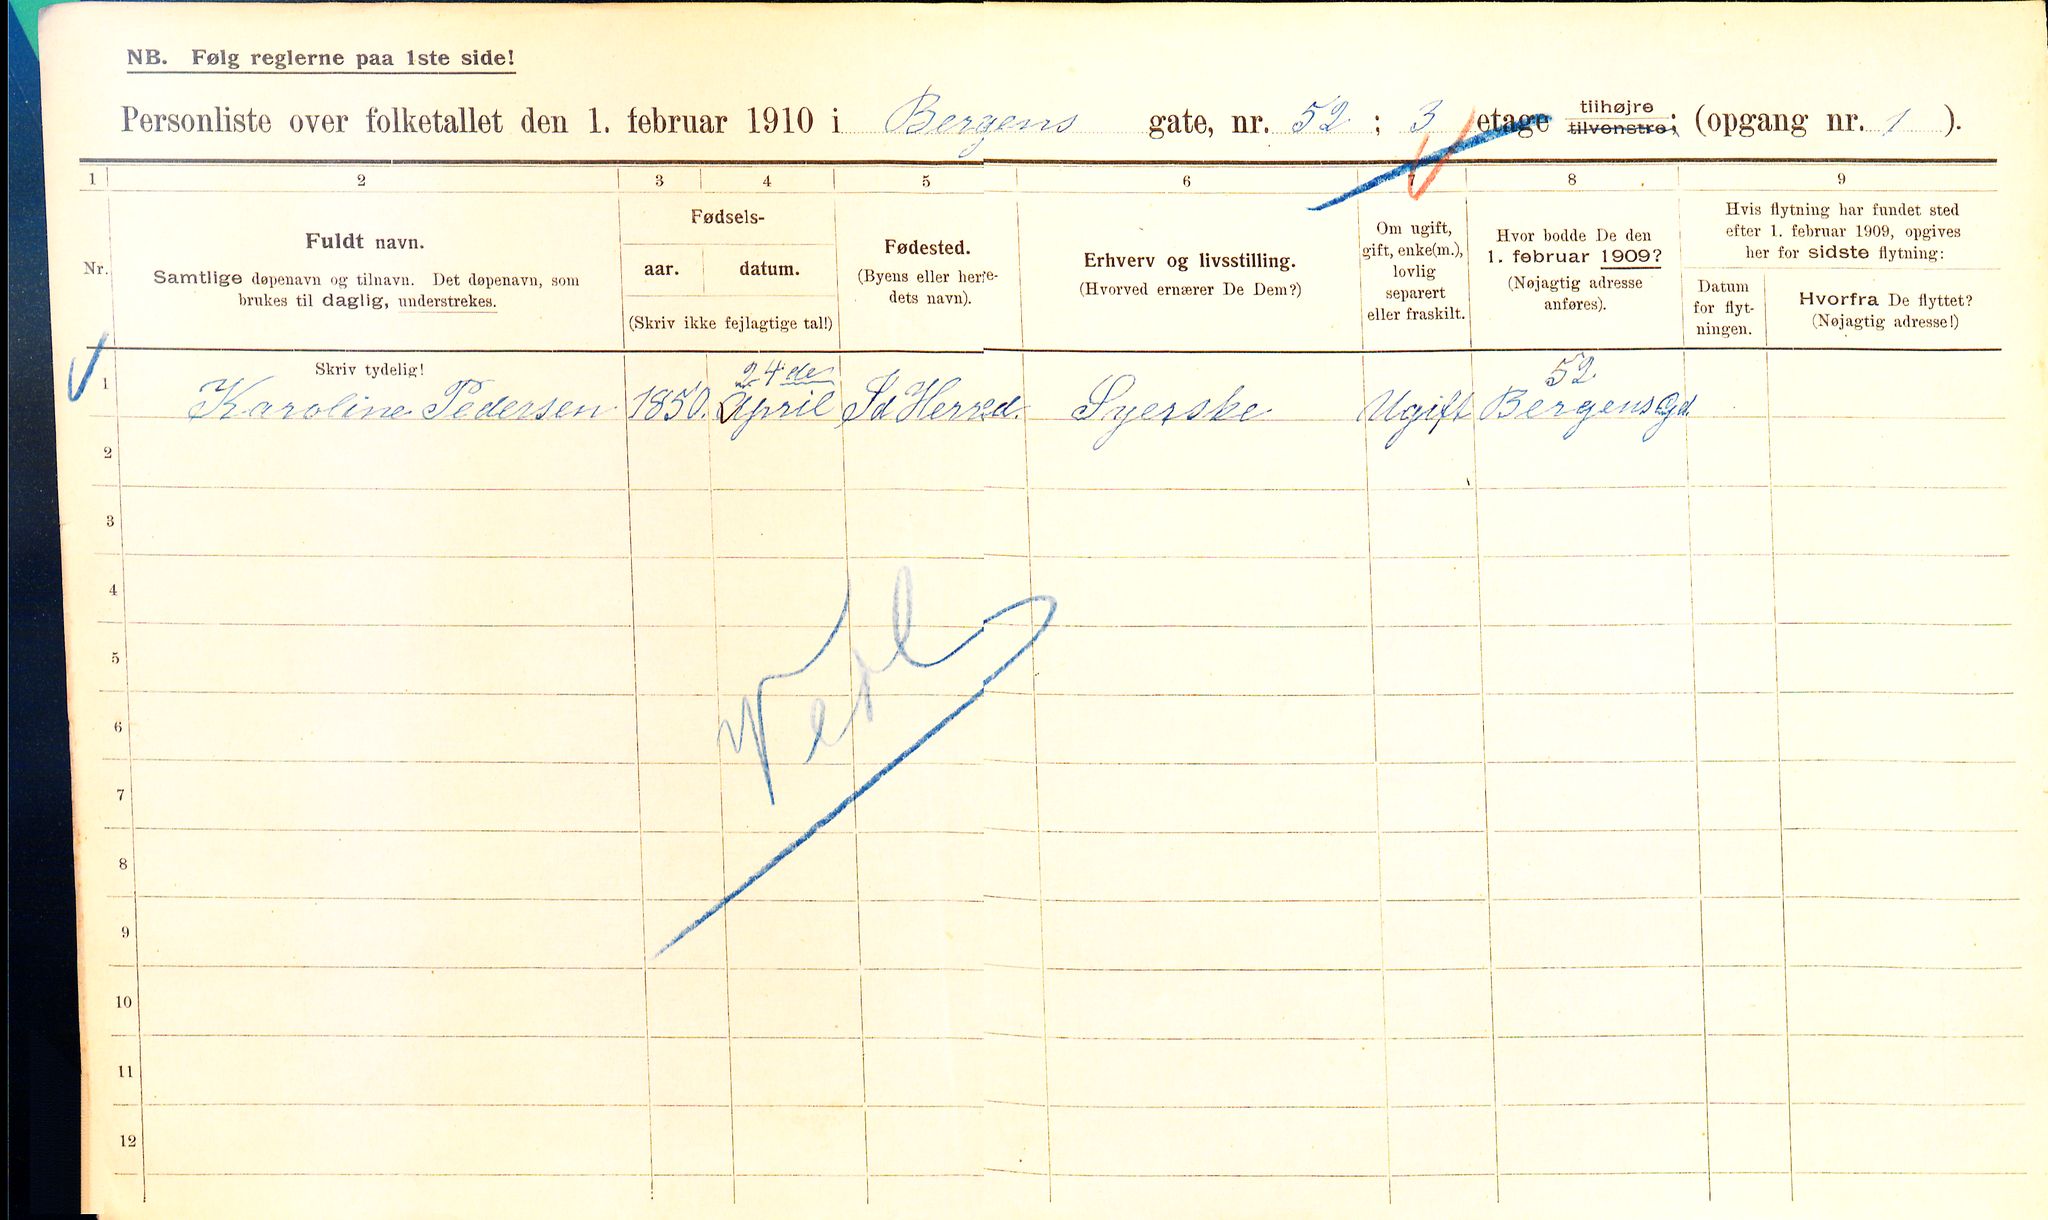 NB. Følg reglerne paa 1ste side!
Personliste over folketallet den 1. februar 1910 i Bergens gate, nr. 52 ; 3 etage tilhøjre tilvenstre; (opgang nr. 1 ).
1 2 3 4 5 6 7 8 9
Nr.
Fuldt navn.
Samtlige døpenavn og tilnavn. Det døpenavn, som
brukes til daglig, understrekes.
Fødsels-
aar. datum.
(Skriv ikke fejlagtige tal!)
Fødested.
(Byens eller herre-
dets navn).
Erhverv og livsstilling.
(Hvorved ernærer De Dem?)
Om ugift,
gift, enke(m.),
lovlig
separert
eller fraskilt.
Hvor bodde De den
1. februar 1909?
(Nøjagtig adresse
anføres).
Hvis flytning har fundet sted
efter 1. februar 1909, opgives
her for sidste flytning:
Datum
for flyt-
ningen.
Hvorfra De flyttet?
(Nøjagtig adresse!)
Skriv tydelig!
24de 52
1 Karoline Pedersen 1850. April Id Herred. Syerske Ugift Bergensgd.
2
3
4
5
6
7
8
9
10
11
12